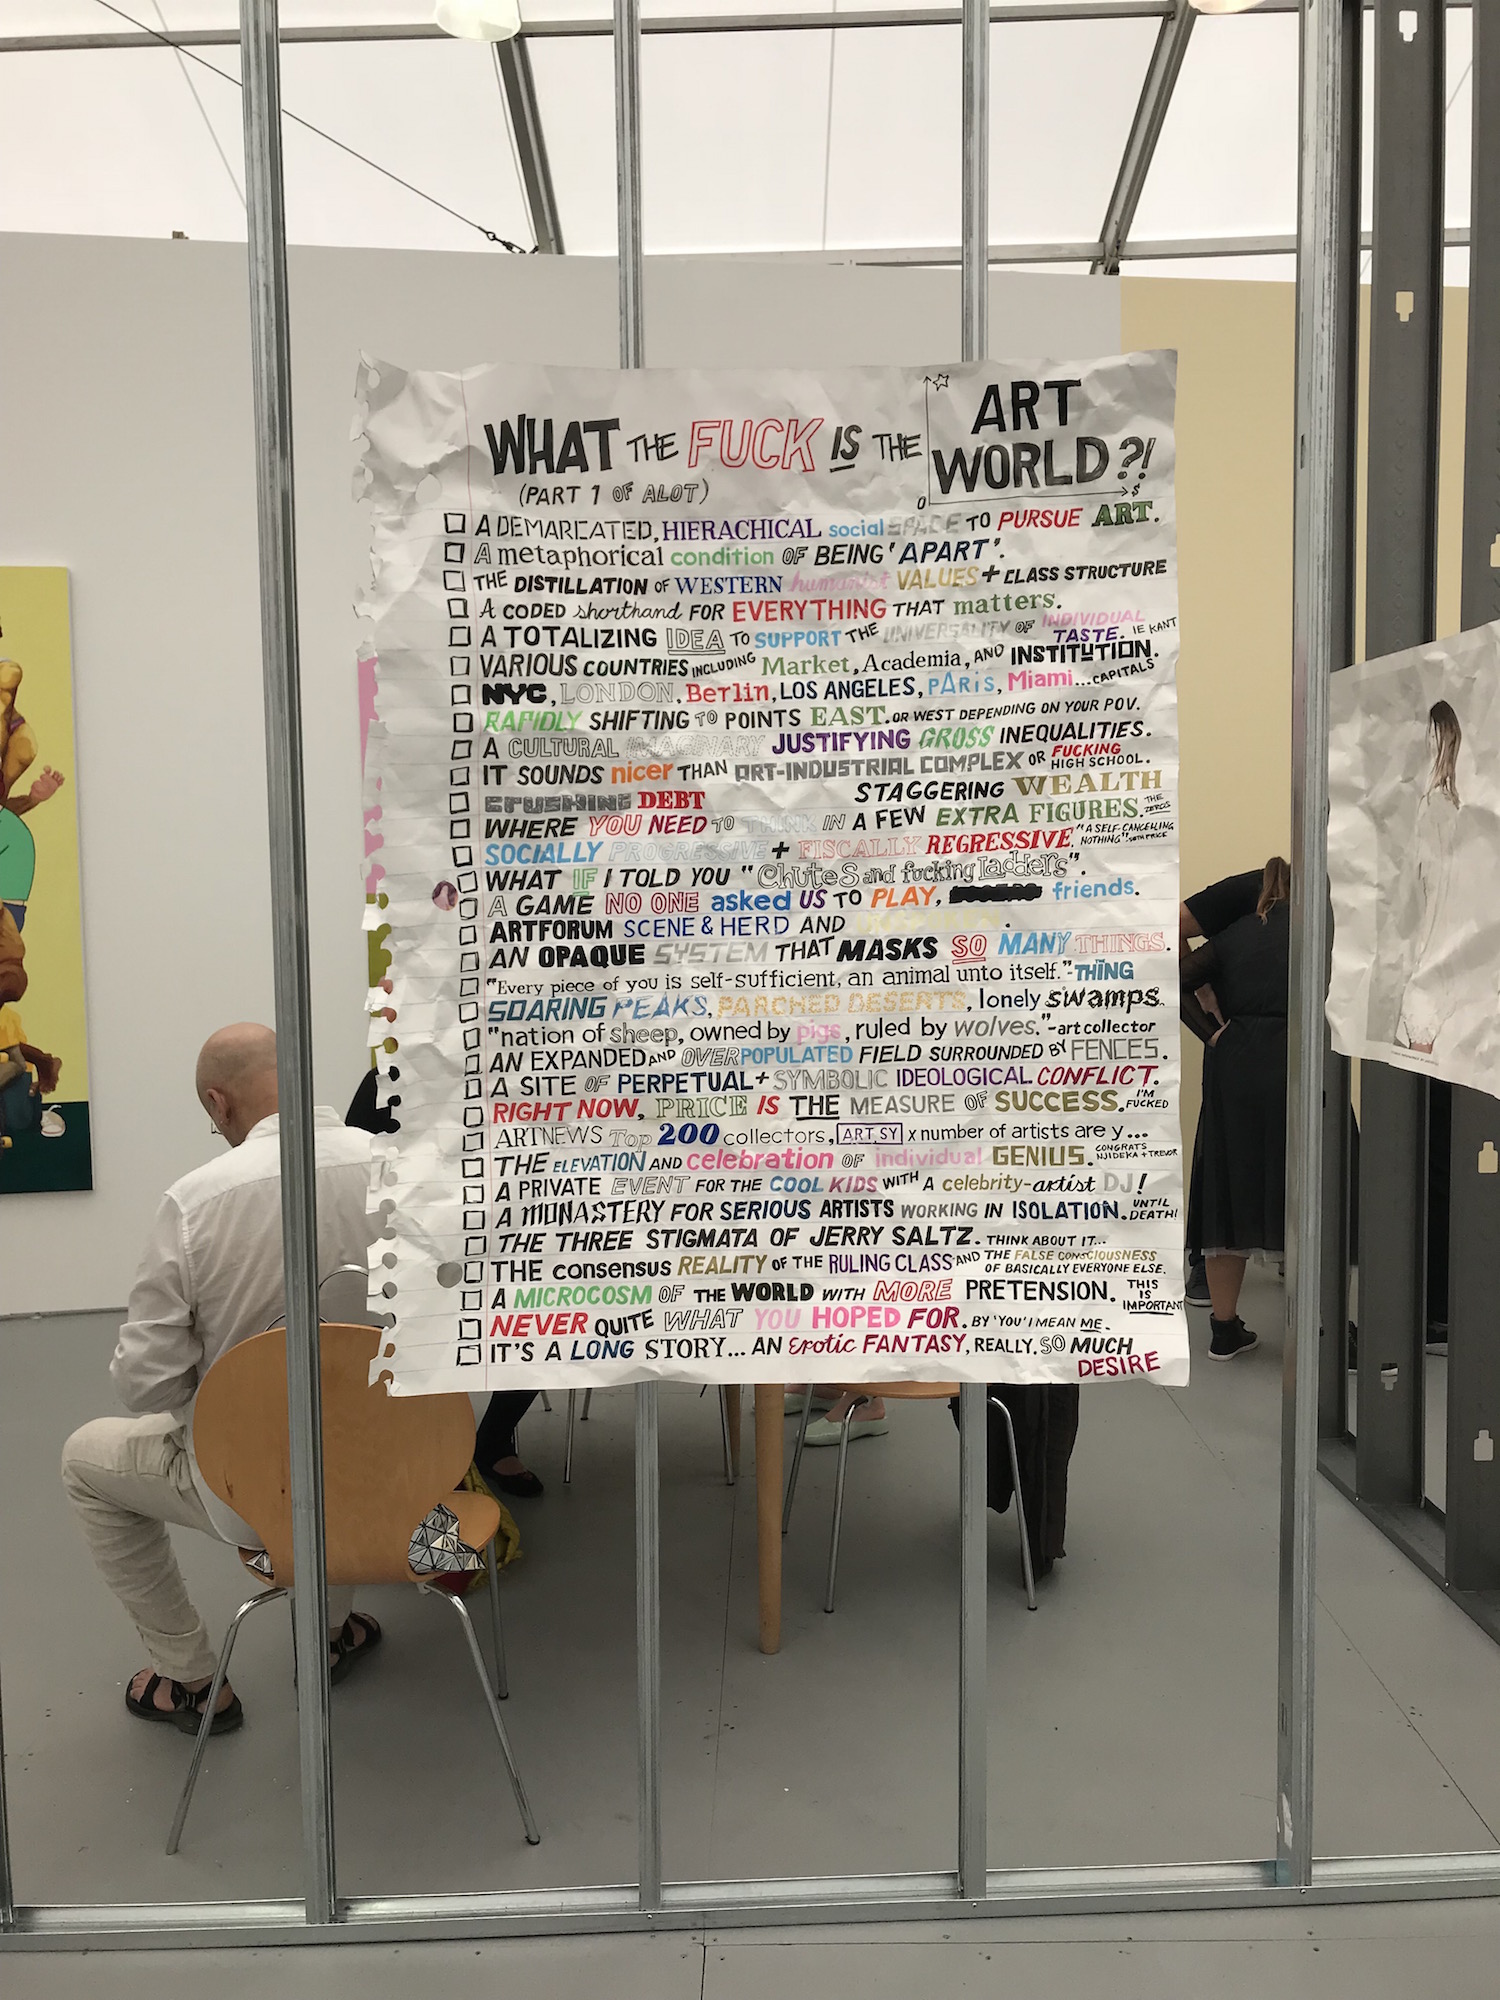 WHAT THE FUCK IS THE ART WORLD?!
(PART 1 OF ALOT)
0
$
A DEMARCATED, HIERACHICAL social SPACE TO PURSUE ART.
A metaphorical condition OF BEING 'APART'.
THE DISTILLATION OF WESTERN humanist VALUES + CLASS STRUCTURE
A CODED shorthand FOR EVERYTHING THAT matters.
A TOTALIZING IDEA TO SUPPORT THE UNIVERSALITY OF INDIVIDUAL TASTE. IE KANT
VARIOUS COUNTRIES INCLUDING Market, Academia, AND INSTITUTION.
NYC, LONDON, Berlin, LOS ANGELES, PARIS, Miami...CAPITALS
RAPIDLY SHIFTING TO POINTS EAST. OR WEST DEPENDING ON YOUR POV.
A CULTURAL IMAGINARY JUSTIFYING GROSS INEQUALITIES.
IT SOUNDS nicer THAN ART-INDUSTRIAL COMPLEX OR FUCKING HIGH SCHOOL.
CRUSHING DEBT STAGGERING WEALTH
WHERE YOU NEED TO THINK IN A FEW EXTRA FIGURES. THE ZEROS
SOCIALLY PROGRESSIVE + FISCALLY REGRESSIVE. "A SELF-CANCELLING NOTHING".
WHAT IF I TOLD YOU "Chutes and fucking Ladders".
A GAME NO ONE asked US TO PLAY, friends.
ARTFORUM SCENE & HERD AND .
AN OPAQUE SYSTEM THAT MASKS SO MANY THINGS.
"Every piece of you is self-sufficient, an animal unto itself."-THING
SOARING PEAKS, PARCHED DESERTS, lonely swamps.
"nation of sheep, owned by pigs, ruled by wolves."-art collector
AN EXPANDED AND OVERPOPULATED FIELD SURROUNDED BY FENCES.
A SITE OF PERPETUAL + SYMBOLIC IDEOLOGICAL CONFLICT.
RIGHT NOW, PRICE IS THE MEASURE OF SUCCESS. I'M FUCKED
ARTNEWS Top 200 collectors, ART.SY x number of artists are y...
THE ELEVATION AND celebration OF individual GENIUS. CONGRATS NJIDEKA + TREVOR
A PRIVATE EVENT FOR THE COOL KIDS WITH A celebrity-artist DJ!
A MONASTERY FOR SERIOUS ARTISTS WORKING IN ISOLATION. UNTIL DEATH!
THE THREE STIGMATA OF JERRY SALTZ. THINK ABOUT IT...
THE consensus REALITY OF THE RULING CLASS AND THE FALSE CONSCIOUSNESS OF BASICALLY EVERYONE ELSE.
A MICROCOSM OF THE WORLD WITH MORE PRETENSION. THIS IS IMPORTANT
NEVER QUITE WHAT YOU HOPED FOR. BY 'YOU' I MEAN ME.
IT'S A LONG STORY... AN Erotic FANTASY, REALLY. SO MUCH DESIRE